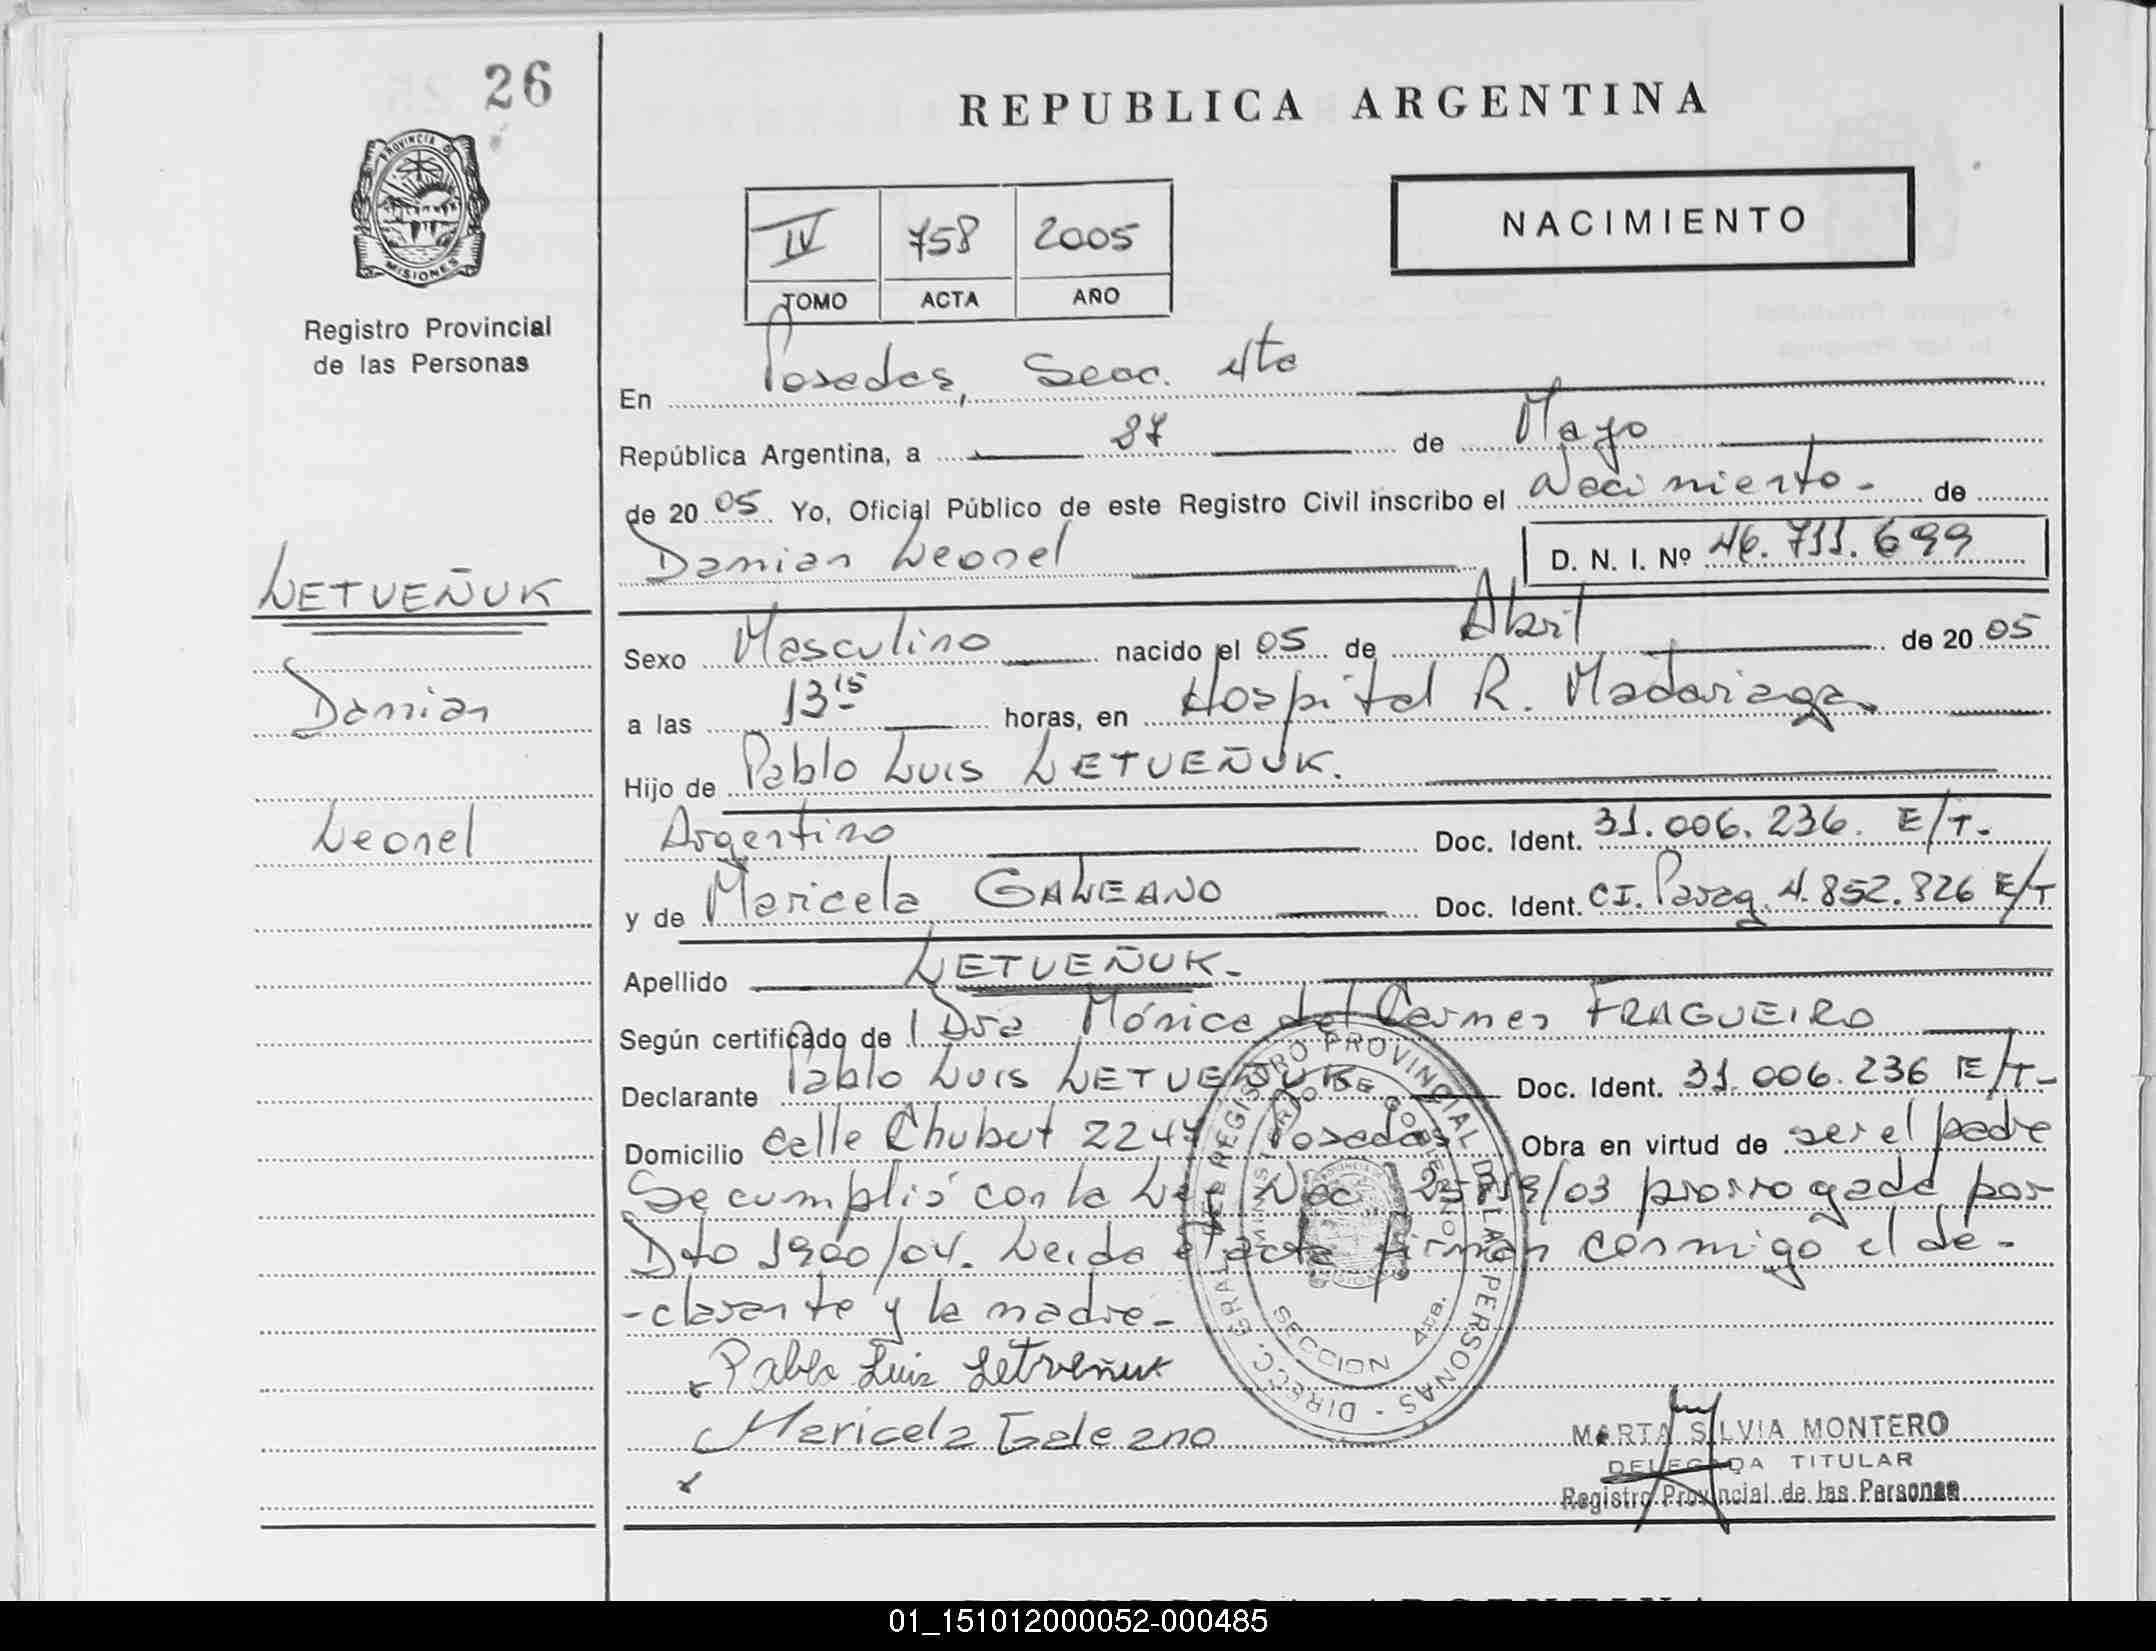 26
PROVINCIA D
MISIONES
Registro Provincial
de las Personas
REPUBLICA ARGENTINA
IV 758 2005
TOMO ACTA AÑO
NACIMIENTO
En Posadas, Secc. 4ta
República Argentina, a 27 de Mayo
de 20 05 Yo, Oficial Público de este Registro Civil inscribo el Nacimiento - de
Damian Leonel D. N. I. Nº 46.711.699
LETVEÑUK
Damian
Leonel
Sexo Masculino nacido el 05 de Abril de 20 05
a las 13 15 horas, en Hospital R. Madariaga
Hijo de Pablo Luis LETVEÑUK.
Argentino Doc. Ident. 31.006.236. E/T.
y de Maricela GALEANO Doc. Ident. CI. Parag. 4.852.826 E/T
Apellido LETVEÑUK-
Según certificado de Dra Mónica del Carmen FRAGUEIRO
Declarante Pablo Luis LETVEÑUK Doc. Ident. 31.006.236 E/T-
Domicilio calle Chubut 2247 Posadas Obra en virtud de ser el padre
Se cumplió con la Ley Nac. 25819/03 prorrogada por
Dto 1900/04. Leida el acta firman conmigo el de-
-clarante y la madre-
Pablo Luis Letveñuk
Maricela Galeano
DIRECC. GRAL. DE REGISTRO PROVINCIAL DE LAS PERSONAS
MINISTERIO DE GOBIERNO
SECCION 4ta.
MARTA SILVIA MONTERO
DELEGADA TITULAR
Registro Provincial de las Personas
01_151012000052-000485